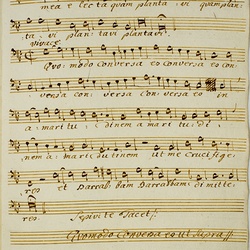 mea e lecta quam planta vi quam plan:
ta: vi plan tavi plantavi.
vivace
Quo: modo conversa es conversa es con:
versa con: versa conversa es in
a: mari tu: dinem a mari tu: di:
nem a: mari: tu dinem ut me crucifige:
res et Barrab: bam Barrabbam di mitte:
res. Sepivi te Tacet
Quomodo conversa es ut supra